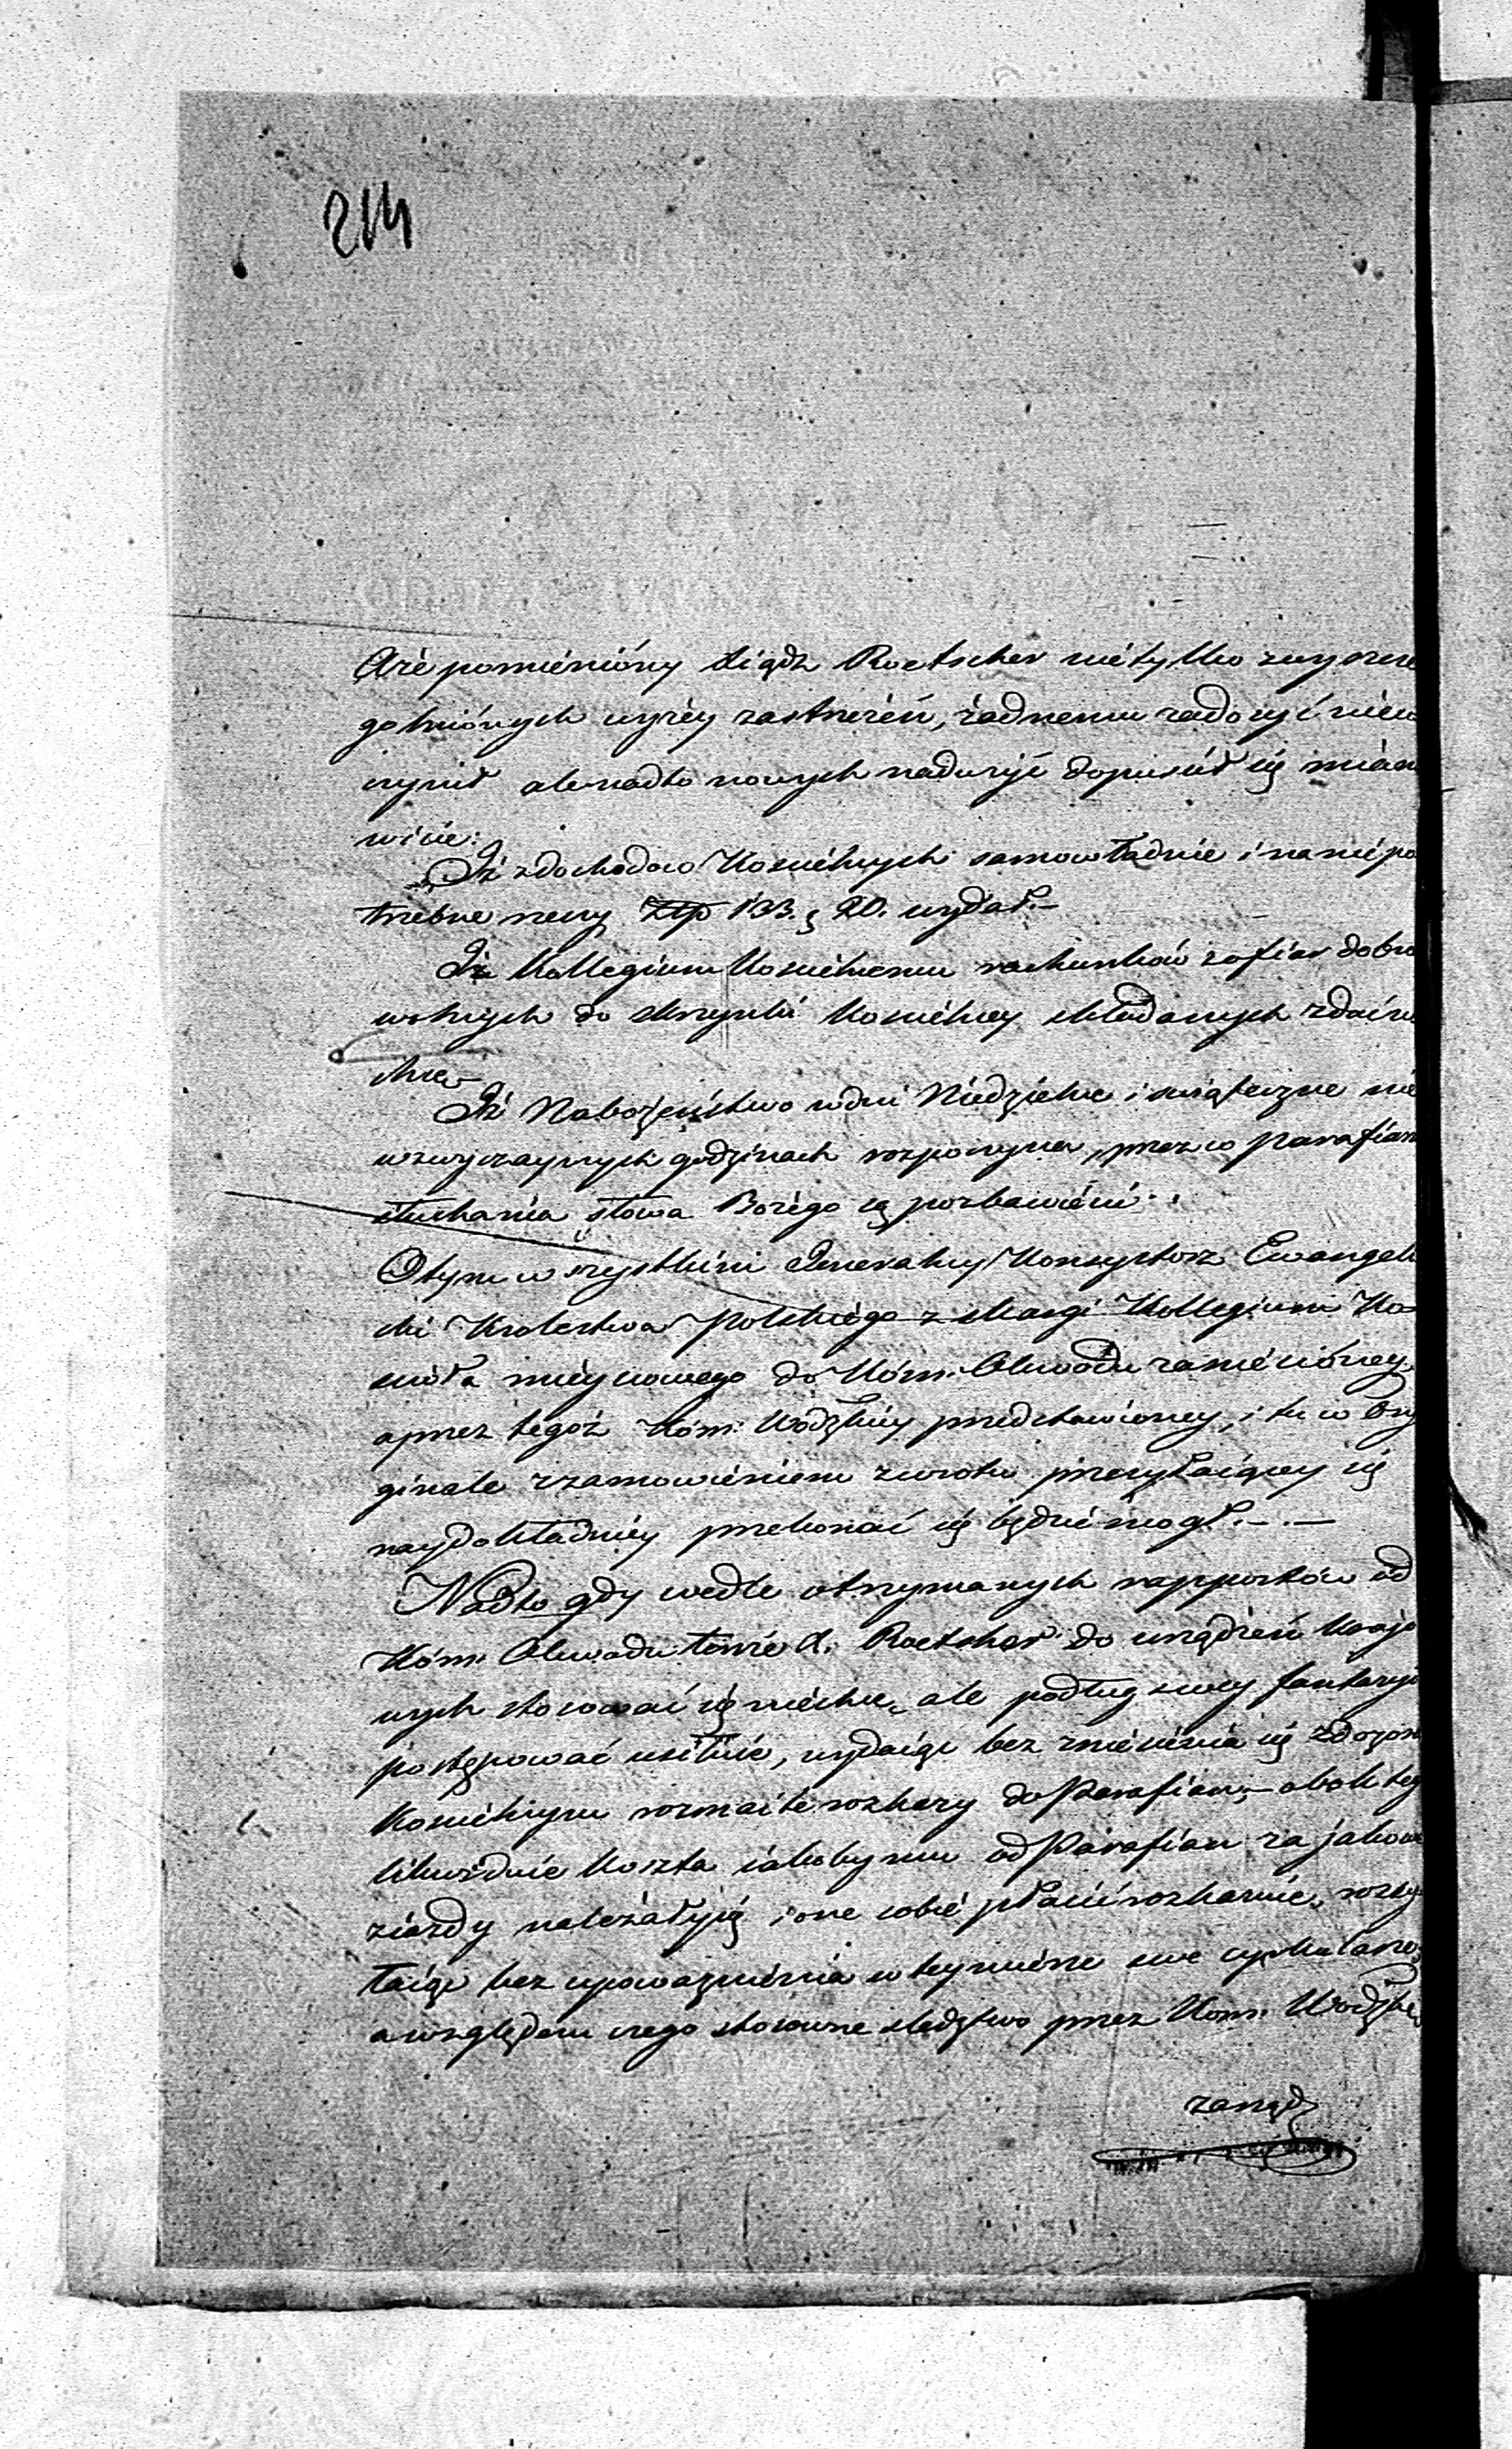 214
A że pomieniony Xiądz Roetscher nietylko zwyszcze
golnionych wyżey zastrzeżeń, żadnemu zadosyć nieu
czynił ale nadto nowych nadużyć dopuścił się miano
wicie:
Iż zdochodow Koscielnych samowładnie i na niepo
trzebne rzeczy Złp 133. g 20. wydał.–
Iż Kollegium Koscielnemu rachunków zofiar dobro
wolnych do skrzynki Koscielney składanych zdać nie
chce–
Iż Nabożeństwo wdni Niedzielne i swiąteczne nie
wzwyczaynych godzinach rozpoczyna, przezco Parafian
słuchania słowa Bożego są pozbawieni.
Otym wszystkim Generalny Konsystorz Ewangeli
cki Krolestwa Polskiego z skargi Kollegium Ko
scioła mieyscowego do Kom: Obwodu zaniesioney
a przez tegoż Kom: Wodzkiey przedstawioney, i tu w Ory
ginale z zamowieniem zwrotu przesyłaiącey się
naydokładniey przekonać się będzie mogł.–.–
Nadto gdy wedle otrzymanych rapportów od
Kom: Obwodu tenże X. Roetscher do urządzeń Krajo
wych stosować się niechce, ale podług swey fantazyi
postępować usiłuie, wydaiąc bez zniesienia się z dozorem
Koscielnym rozmaite rozkazy do Parafian,– obok teg
likwiduie koszta iakoby mu od Parafian za jakowe
ziazdy należały się i one sobie płacić rozkazuie, rozsy
łaiąc bez upoważnienia w teymierze swe cyrkularze
a względem czego stosowne sledztwo przez Kom: Wodzką
zarząd